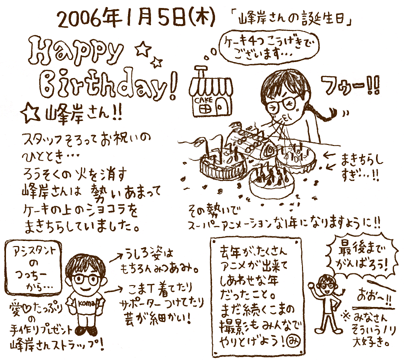 2006年1月5日(木) 「峰岸さんの誕生日」
Happy
Birthday!
☆峰岸さん!!
ケーキ4つこうげきで
ございます…
CAKE
フゥー!!
スタッフそろってお祝いの
ひととき…
ろうそくの火を消す
峰岸さんは 勢いあまって
ケーキの上のショコラを
まきちらしていました。
まきちらし
すぎ…!!
その勢いで
スーパーアニメーションな1年になりますように!!
アシスタントの
つっちー
から…
愛♡たっぷり
の
手作りプレゼント
峰岸さんストラップ!
koma
うしろ姿は
もちろんみつあみ。
こまT着てたり
サポーターつけてたり
芸が細かい!
去年がたくさん
アニメが出来て
しあわせな年
だったこと。
まだ続くこまの
撮影もみんなで
やりとげよう! み
最後まで
がんばろう!
おおー!!
※みなさん
そういうノリ
大好き。